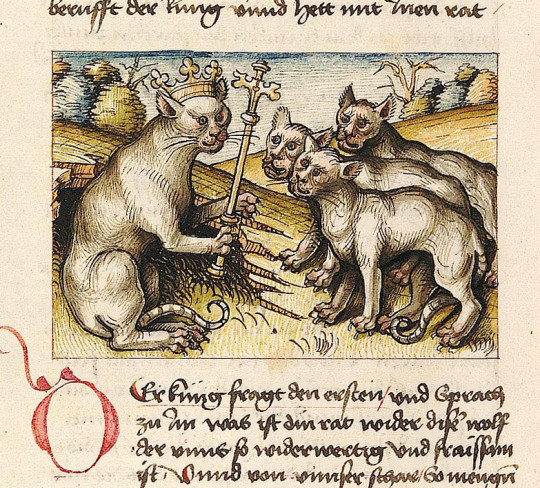 berufft der küng vnnd hett mit Inen rat
DEr küng fragt den ersten / vnd Sprach
zu Im was ist din rat wider dise wolf
der vnns so widerwertig vnd fraissam
ist / Vnnd von vnnser schare / So mengen